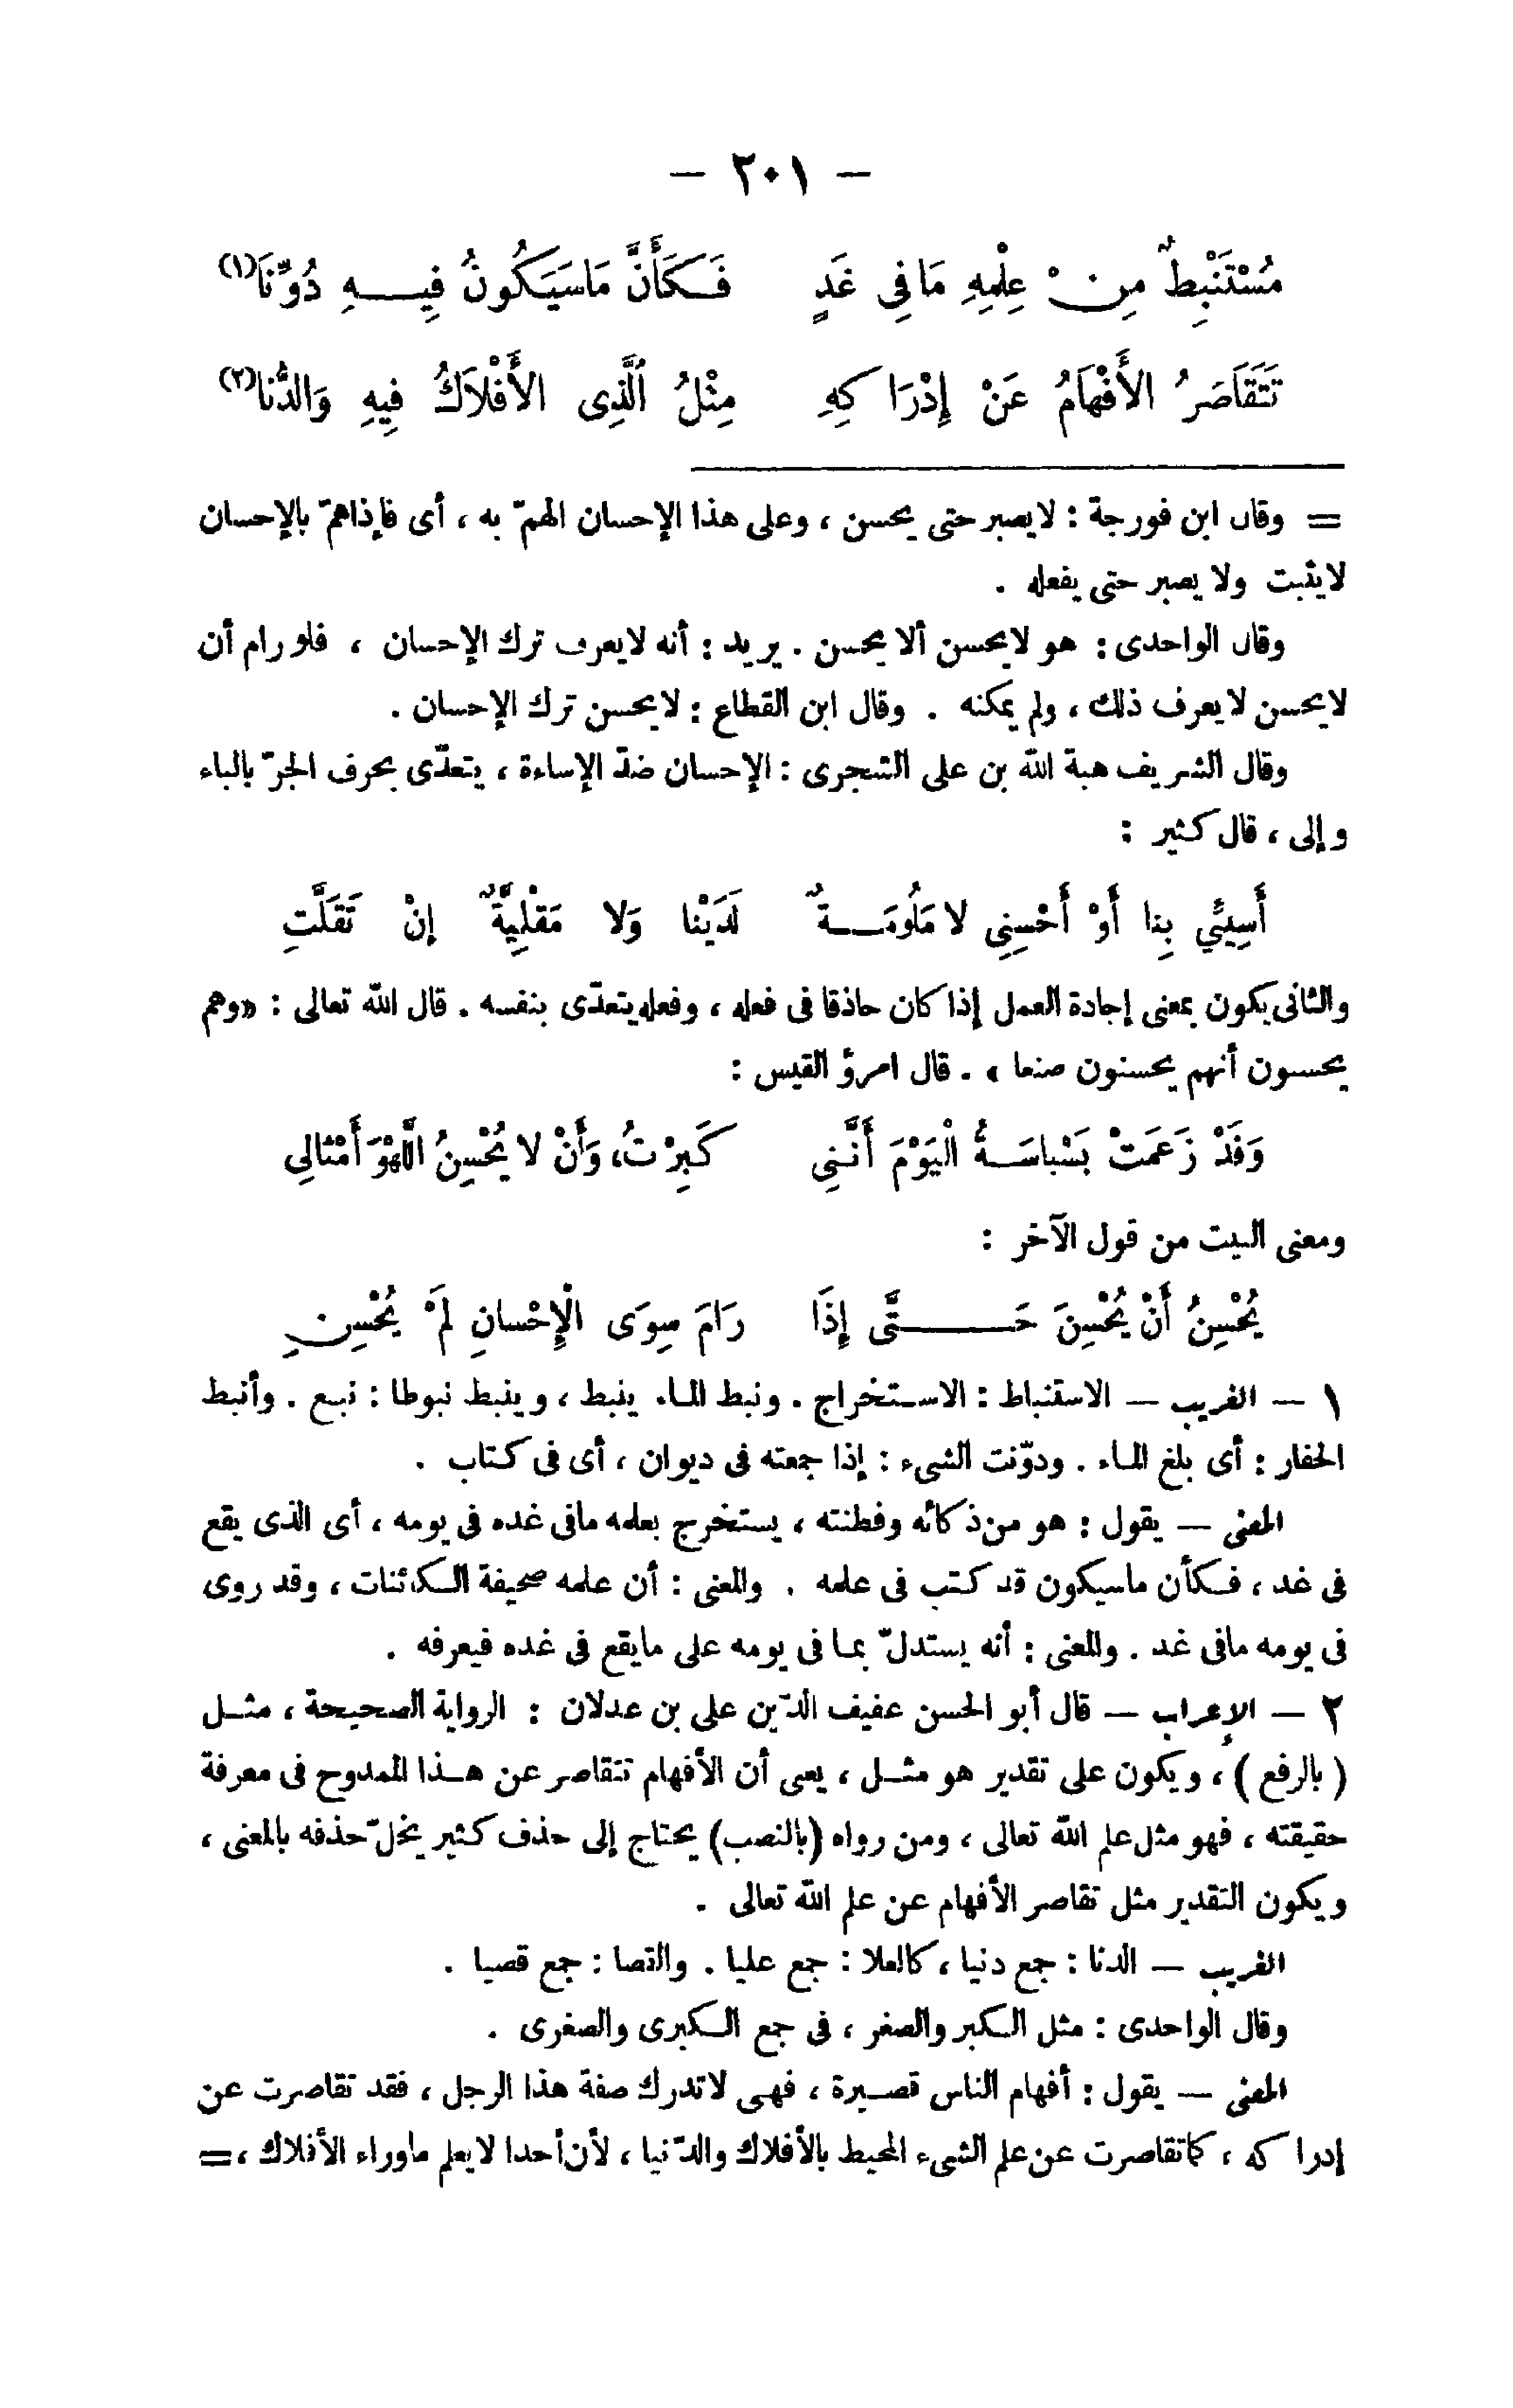 — ٢٠١ —
مُسْتَنْبِطٌ مِنْ عِلْمِهِ مَا فِى غَدٍ فَكَأَنَّ مَاسَيَكُونُ فِيهِ دُوِّنَا(١)
تَتَقَاصَرُ الأَفْهَامُ عَنْ إِدْرَاكِهِ مِثْلُ الَّذِى الأَفْلاَكُ فِيهِ وَالدُّنا(٢)
= وقال ابن فورجة : لايصبر حتى يحسن ، وعلى هذا الإحسان الهمّ به ، أى فإذاهمّ بالإحسان
لايثبت ولا يصبر حتى يفعله .
وقال الواحدى : هو لايحسن ألا يحسن . يريد : أنه لايعرف ترك الإحسان ، فلو رام أن
لايحسن لايعرف ذلك ، ولم يمكنه . وقال ابن القطاع : لايحسن ترك الإحسان .
وقال الشريف هبة الله بن على الشجرى : الإحسان ضدّ الإساءة ، يتعدّى بحرف الجرّ بالباء
وإلى ، قال كثير :
أَسِيئِي بِنا أَوْ أَحْسِنِى لا مَلُومَةٌ لَدَيْنا وَلا مَقْلِيَّةٌ إِنْ تَقَلَّتِ
والثانى يكون بمعنى إجادة العمل إذا كان حاذقا فى فعله ، وفعله يتعدّى بنفسه . قال الله تعالى : «وهم
يحسبون أنهم يحسنون صنعا » . قال امرؤ القيس :
وَقَدْ زَعَمَتْ بَسْباسَةُ الْيَوْمَ أَنَّنِى كَبِرْتُ، وَأَنْ لا يُحْسِنُ اللَّهْوَ أَمْثالِى
ومعنى البيت من قول الآخر :
يُحْسِنُ أَنْ يُحْسِنَ حَتَّى إِذَا رَامَ سِوَى الْإِحْسانِ لَمْ يُحْسِنِ
١ — الغريب — الاستنباط : الاستخراج . ونبط الماء ينبط ، وينبط نبوطا : نبع . وأنبط
الحفار : أى بلغ الماء . ودوّنت الشىء : إذا جمعته فى ديوان ، أى فى كتاب .
المعنى — يقول : هو من ذكائه وفطنته ، يستخرج بعلمه مافى غده فى يومه ، أى الذى يقع
فى غد ، فكأن ماسيكون قد كتب فى علمه . والمعنى : أن علمه صحيفة الكائنات ، وقد روى
فى يومه مافى غد . والمعنى : أنه يستدلّ بما فى يومه على مايقع فى غده فيعرفه .
٢ — الإعراب — قال أبو الحسن عفيف الدّين على بن عدلان : الرواية الصحيحة ، مثل
( بالرفع ) ، ويكون على تقدير هو مثل ، يعنى أن الأفهام تتقاصر عن هذا الممدوح فى معرفة
حقيقته ، فهو مثل علم الله تعالى ، ومن رواه (بالنصب) يحتاج إلى حذف كثير يخلّ حذفه بالمعنى ،
ويكون التقدير مثل تقاصر الأفهام عن علم الله تعالى .
الغريب — الدنا : جمع دنيا ، كالعلا : جمع عليا . والقصا : جمع قصيا .
وقال الواحدى : مثل الكبر والصغر ، فى جمع الكبرى والصغرى .
المعنى — يقول : أفهام الناس قصيرة ، فهى لاتدرك صفة هذا الرجل ، فقد تقاصرت عن
إدراكه ، كماتقاصرت عن علم الشىء المحيط بالأفلاك والدّنيا ، لأن أحدا لايعلم ماوراء الأفلاك ، =